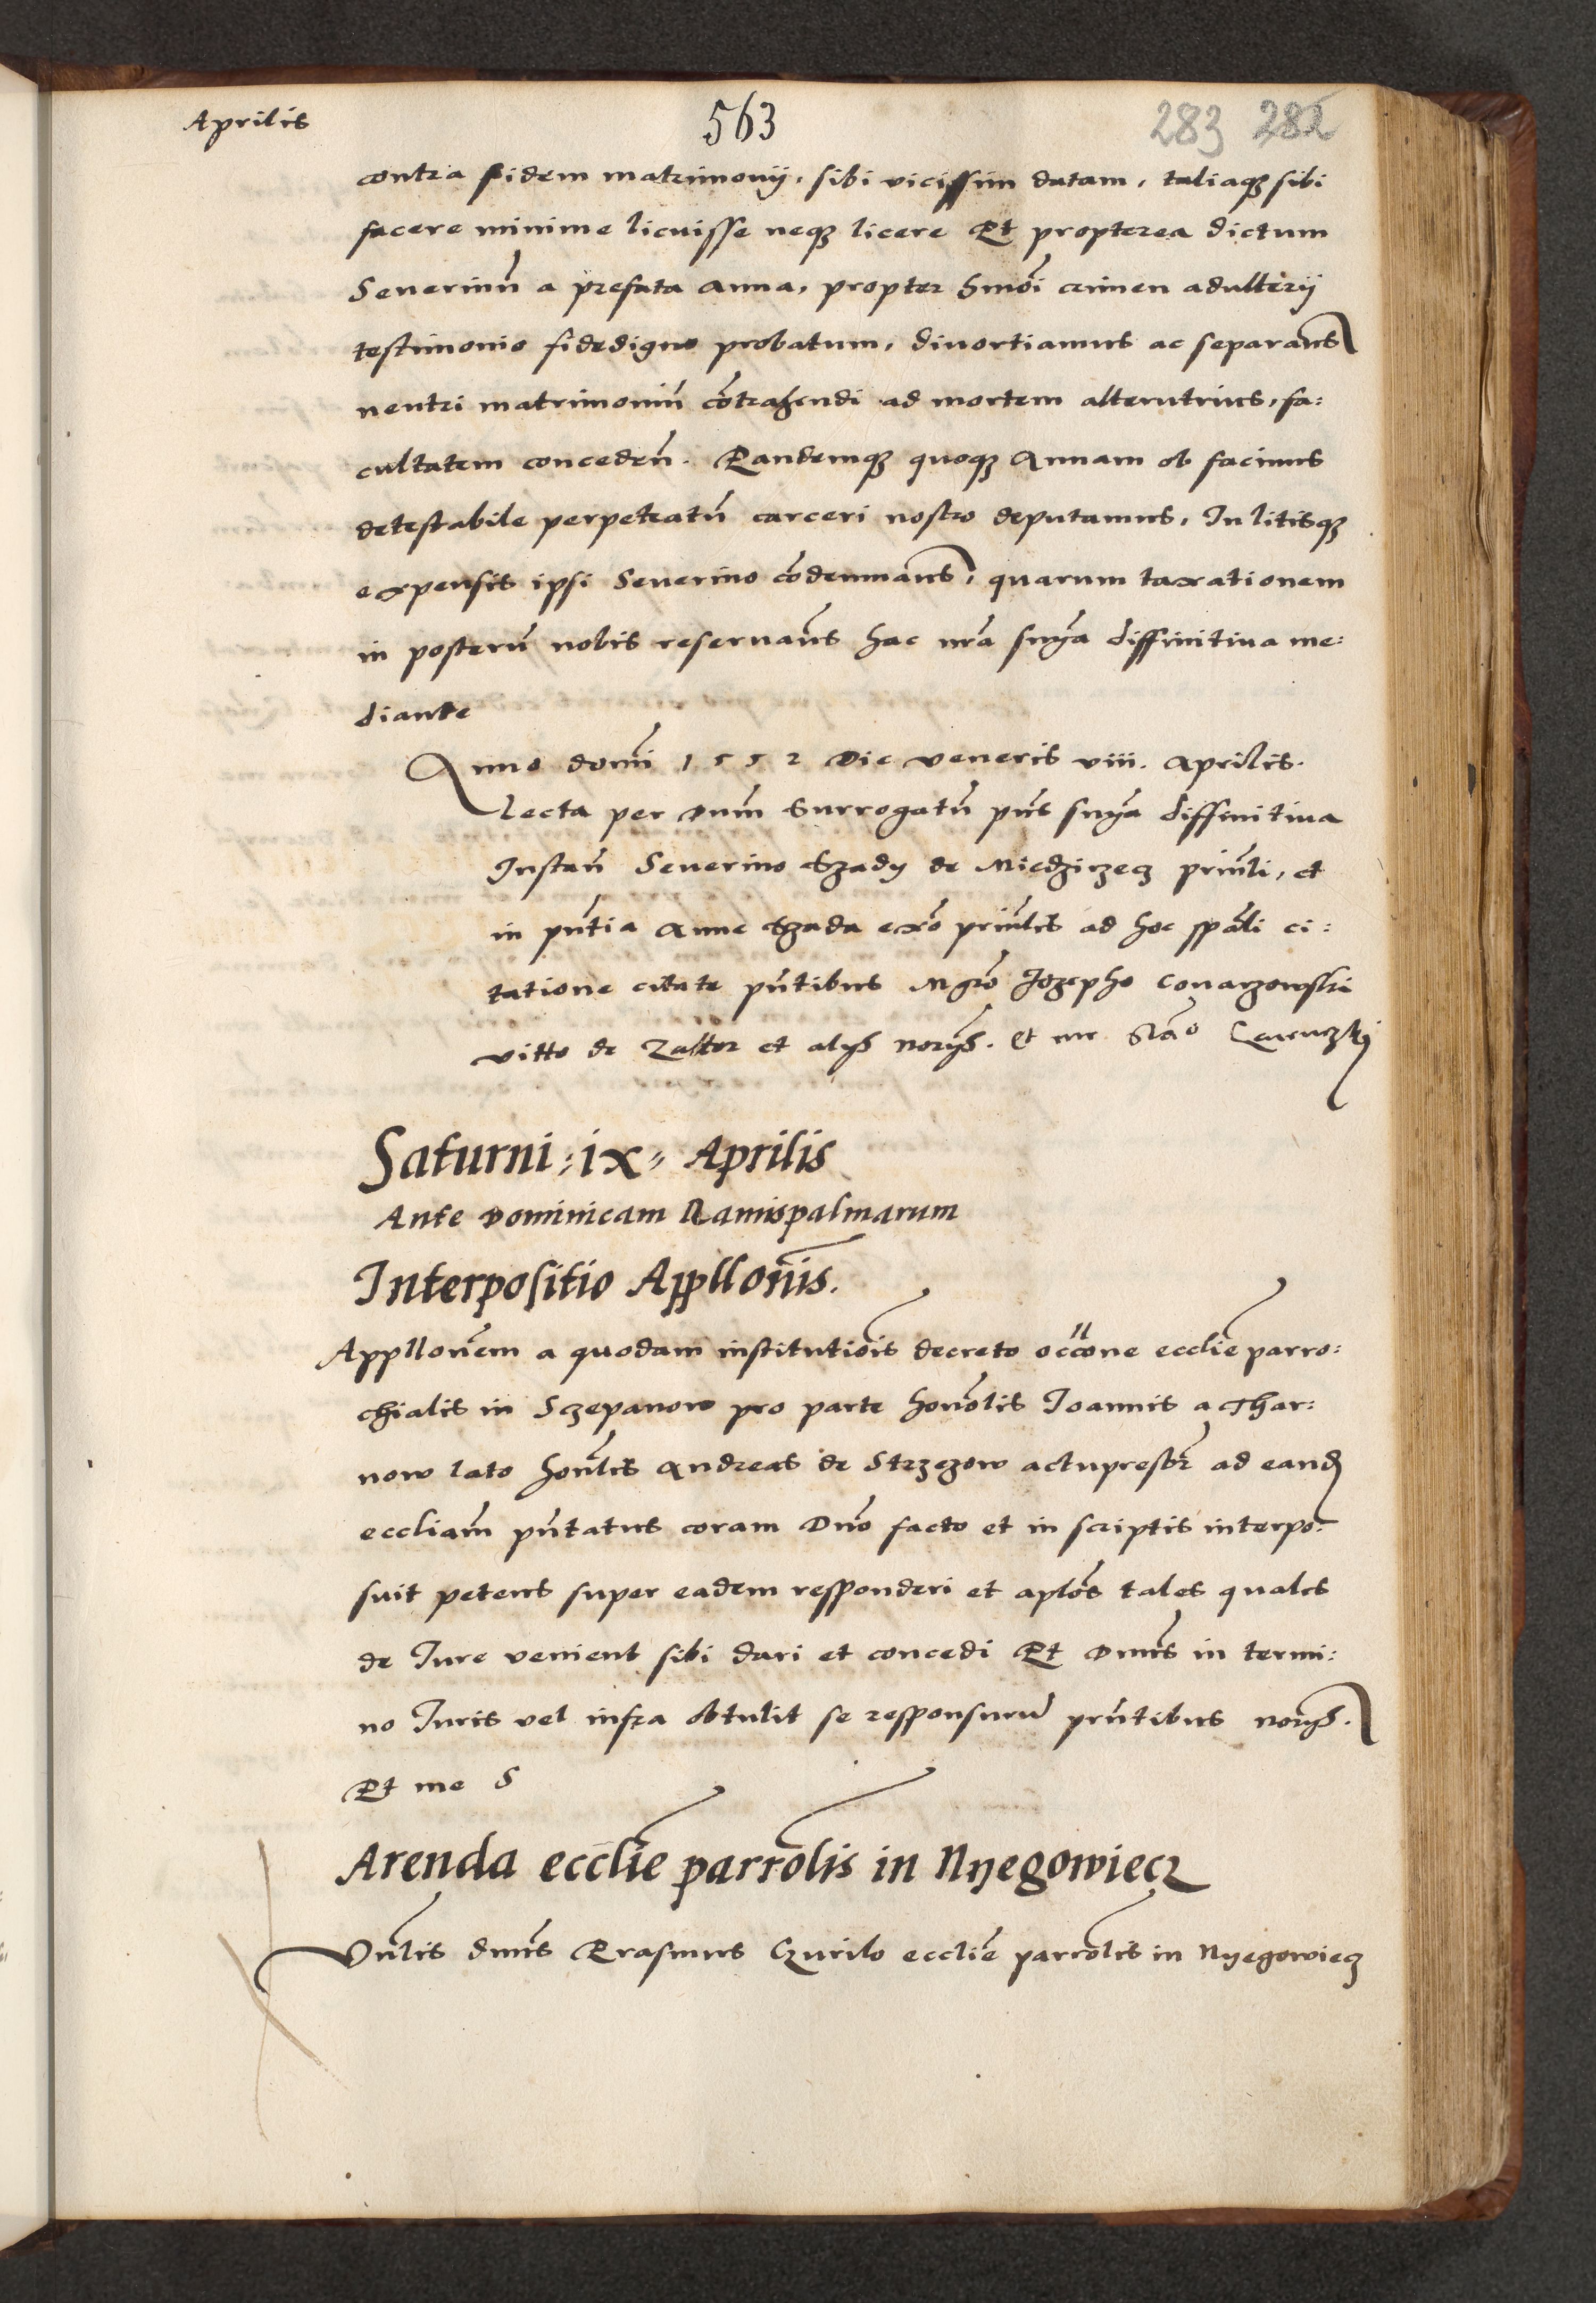 Aprilis 563 283 282
contra fidem matrimonij, sibi vicissim datam, taliaqȝ sibi
facere minime licuisse neqȝ licere Et propterea dictum
Seuerinū a prefata anna, propter hmōi crimen adulterij
testimonio fidedigno probatum, diuortiamus ac separam̄s
neutri matrimoniū cōtrahendi ad mortem alterutrius, fa:
cultatem conceden̄. Eandemqȝ quoqȝ Annam ob facinus
detestabile perpetratū carceri nostro deputamus, In litisqȝ
expensis ipsi Seuerino cōdemnam̄s, quarum taxationem
in posterū nobis reseruam̄s hac nr̄a sn̄ia diffinitiua me:
diante
Anno domī 1552 Die veneris viii. Aprilis.
Lecta per Dnm̄ Surrogatū pn̄s sn̄ia diffinitiua
Instan̄ Seuerino Szady de Miedzirzecz prin̄li, et
in pn̄tia Anne Szada exō prin̄lis ad hoc sp̄ali ci:
tatione citate pn̄tibus Mgr̄o Jozepho Conarzowski
vitto de Zator et alijs norijs. et me Stāo
Saturni ix Aprilis
Ante Dominicam Ramispalmarum
Interpositio Appllōnis.
Appllonēm a quodam institutiōis decreto occōne ecclīe parro:
chialis in Sczepanow pro parte honōlis Joannis a Thar:
now lato honīlis Andreas de Strzezow actupresbr̄ ad eand
eccliam̄ pn̄tatus coram Dnō facto et in scriptis interpo:
suit petens super eadem responderi et aplōs tales quales
de Jure venient sibi dari et concedi Et Dnus̄ in termi:
no Juris vel infra obtulit se responsurū prn̄tibus norijs.
Et me S
Arenda ecclīe parrōlis in Nyegowiecz
Vn̄lis dnus̄ Erasmus Czurilo ecclīe parrōlis in Nyegowiecz